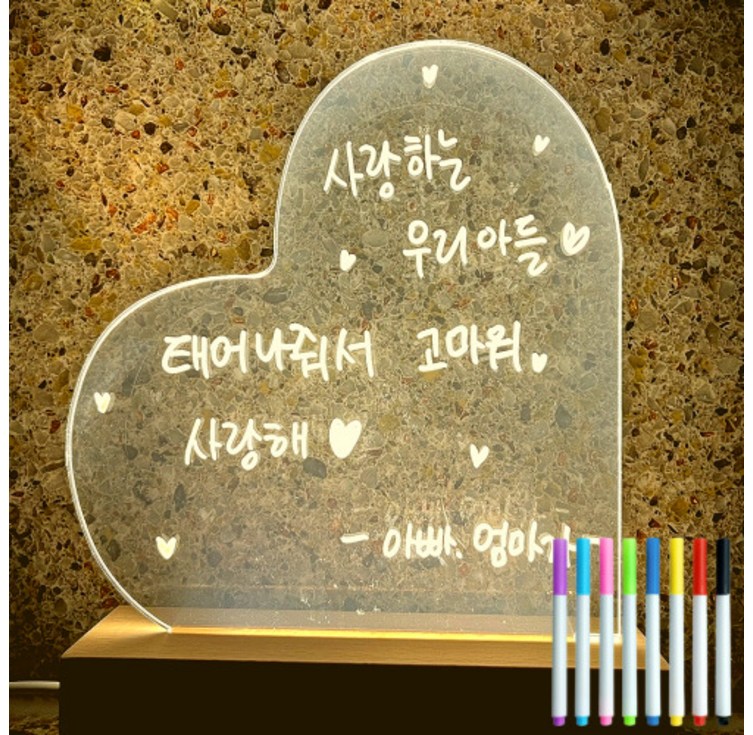 사랑하는
우리아들
태어나줘서 고마워
사랑해
- 아빠. 엄마가 -